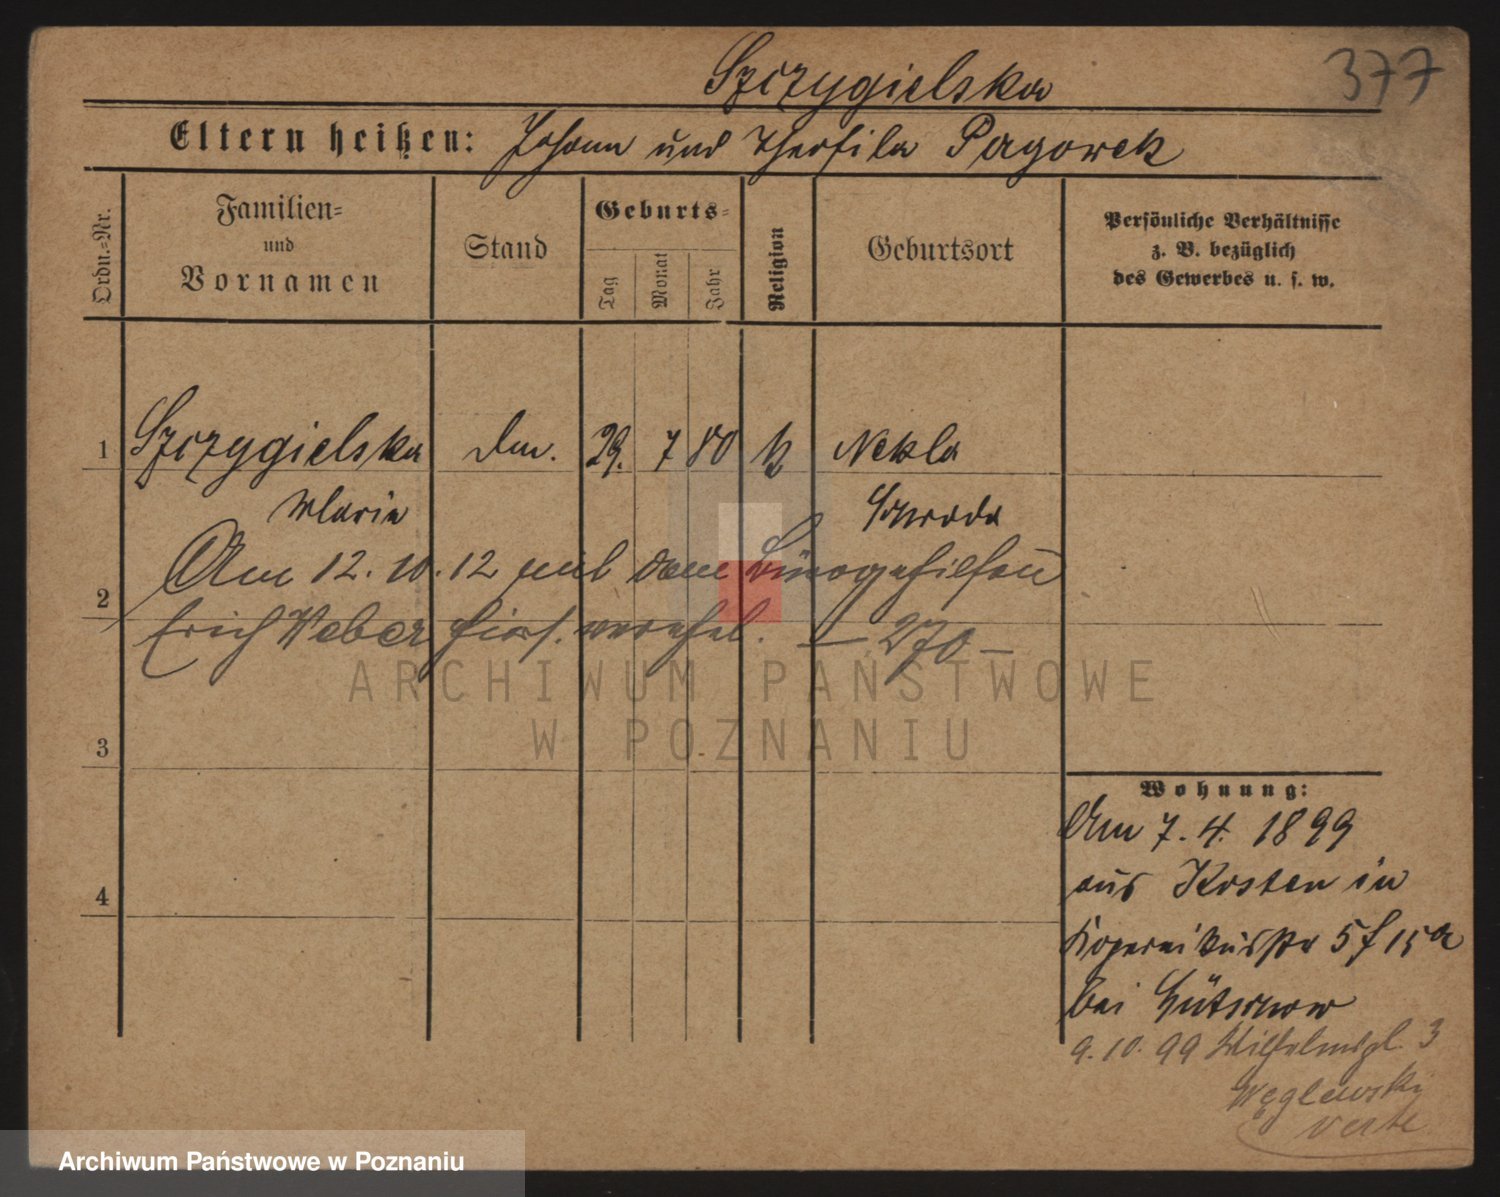 Szczygielska 377
Eltern heißen: Johann und Theofila Pagowek
Ordn.=Nr.
Familien=
und
Vornamen
Stand
Geburts=
Tag
Monat
Jahr
Religion
Geburtsort
Persönliche Verhältnisse
z. B. bezüglich
des Gewerbes u. s. w.
1 Szczygielska 29. 7 80 k Nekla
Maria Schroda
Am 12. 10. 12 mit dem Bürogehilfen
2
Erich Weber hiers. verehel. — 270 —
3
4
Wohnung:
Am 7. 4. 1899
aus Kosten in
Kopernikusstr 5 f 15a
bei
9. 10. 99 Wilhelmspl. 3
Węglewski
verte
ARCHIWUM PAŃSTWOWE
W POZNANIU
Archiwum Państwowe w Poznaniu